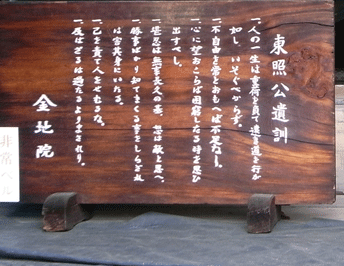 東照公遺訓
一、人の一生は重荷を負て遠き道を行が
如し、いそぐべからず。
一、不自由を常とおもへば不足なし。
一、心に望おこらば困窮したる時を思ひ
出すべし。
一、堪忍は無事長久の基、怒は敵と思へ。
一、勝事ばかり知てまくる事をしらざれ
ば害其身にいたる。
一、己を責て人をせむるな。
一、及ばざるは過たるよりまされり。
金地院
非常ベル